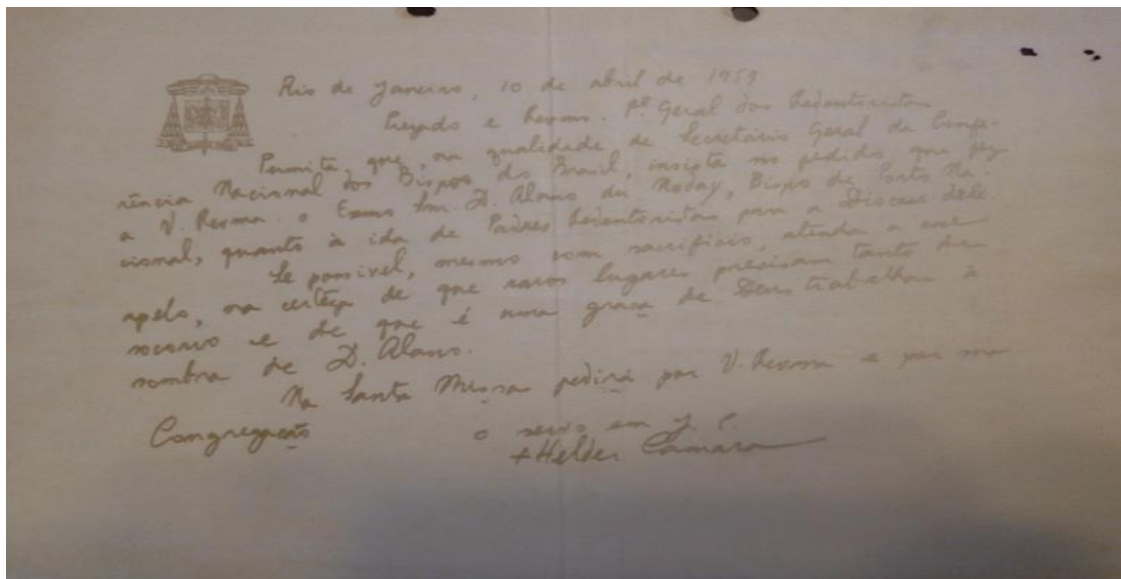 Rio de Janeiro, 10 de abril de 1959
Prezado e Revmo. Pe. Geral dos Redentoristas
Permita, que, na qualidade de Secretário Geral da Confe-
rência Nacional dos Bispos do Brasil, insista no pedido que fez
a V. Revma. o Exmo Snr. D. Alano du Noday, Bispo de Porto Na-
cional, quanto à ida de Padres Redentoristas para a Diocese dele.
Se possível, mesmo com sacrifício, atenda a esse
apelo, na certeza de que raros lugares precisam tanto de
socorro e de que é uma graça de Deus trabalhar à
sombra de D. Alano.
Na Santa Missa pedirá por V. Revma e por sua
Congregação
o servo em J. C.
+Helder Camara